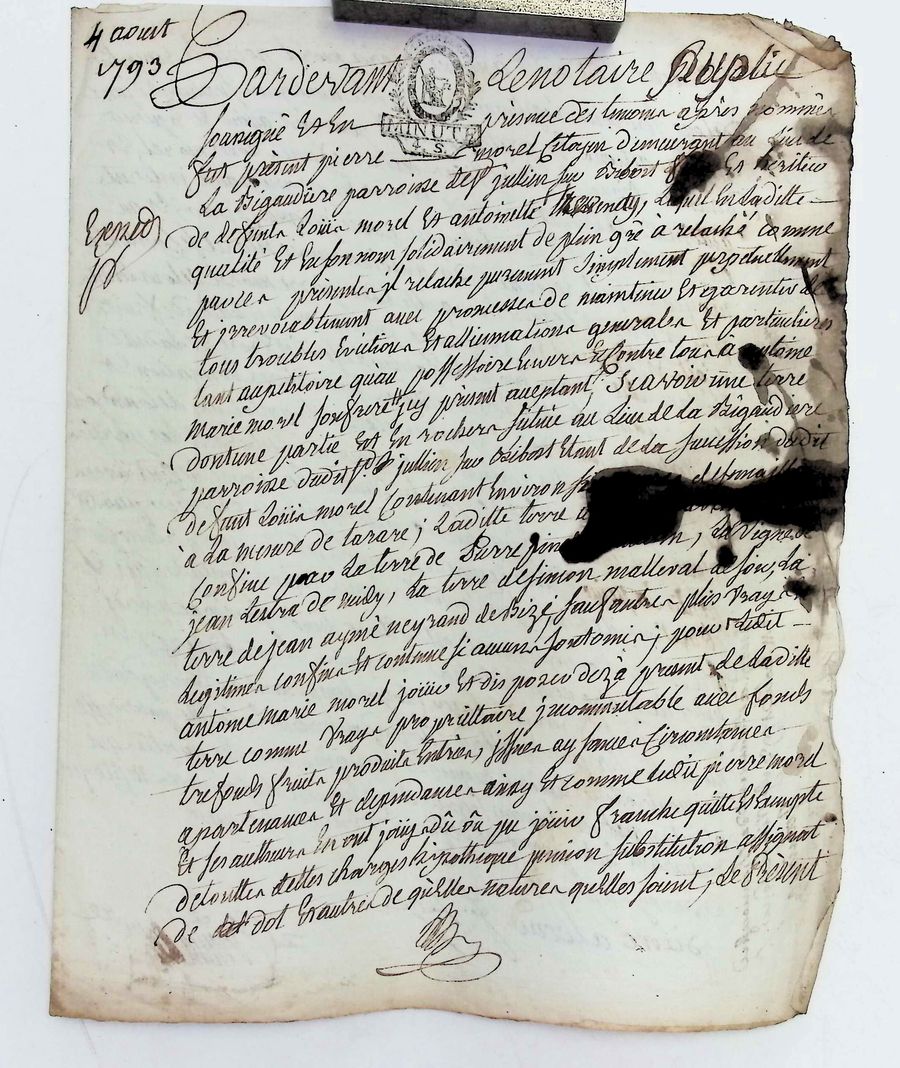 4 aoust
1793
Pardevant Le notaire Public
MINUTE
4. S.
sousigné Et En presence des temoins après nommés
fut présent pierre morel Citoyen demeurant au Lieu de
La Bigaudiere parroisse de St jullien sur Bibost Et heritier
Exped
de defunts Loüis morel Et antoinette Lequel En Laditte
qualité Et En son nom solidairement de plein gré à relaché Comme
par ces presentes il relache purement simplement perpetuellement
Et irrevocablement avec promesses de maintenir Et garentir de
tous troubles Evictions Et generales Et particulieres
tant au petitoire qu'au possessoire Envers Et Contre tous à antoine
marie morel son frere icy present aceptant, Scavoir une terre
dont une partie Est En rochers située au Lieu de La Bigaudiere
parroisse dudit St jullien sur Bibost Etant de la succession dudit
defunt Loüis morel Contenant Environ
à La mesure de tarare; Laditte terre
Confine par La terre de Pierre La vigne de
jean de midy, La terre de simon malleval de soir, La
terre de jean aymé neyrand de Bize, sauf autres plus vrays
Legitimes confins Et contenue si aucuns sont omis; pour Ledit
antoine marie morel joüir Et disposer dezà present de Laditte
terre comme vrays propriettaire incommutable avec fonds
trefonds fruits produits Entrées, issues aysances Circonstances
apartenances Et dependances ainsy Et comme Ledit pierre morel
Et ses autheurs En ont joüy dû ou pu joüir franche quitte Et Exempte
de touttes dettes charges hipothèque pension substitution assignat
de dot Et autres de qu'elles natures quelles soient, Le Présent